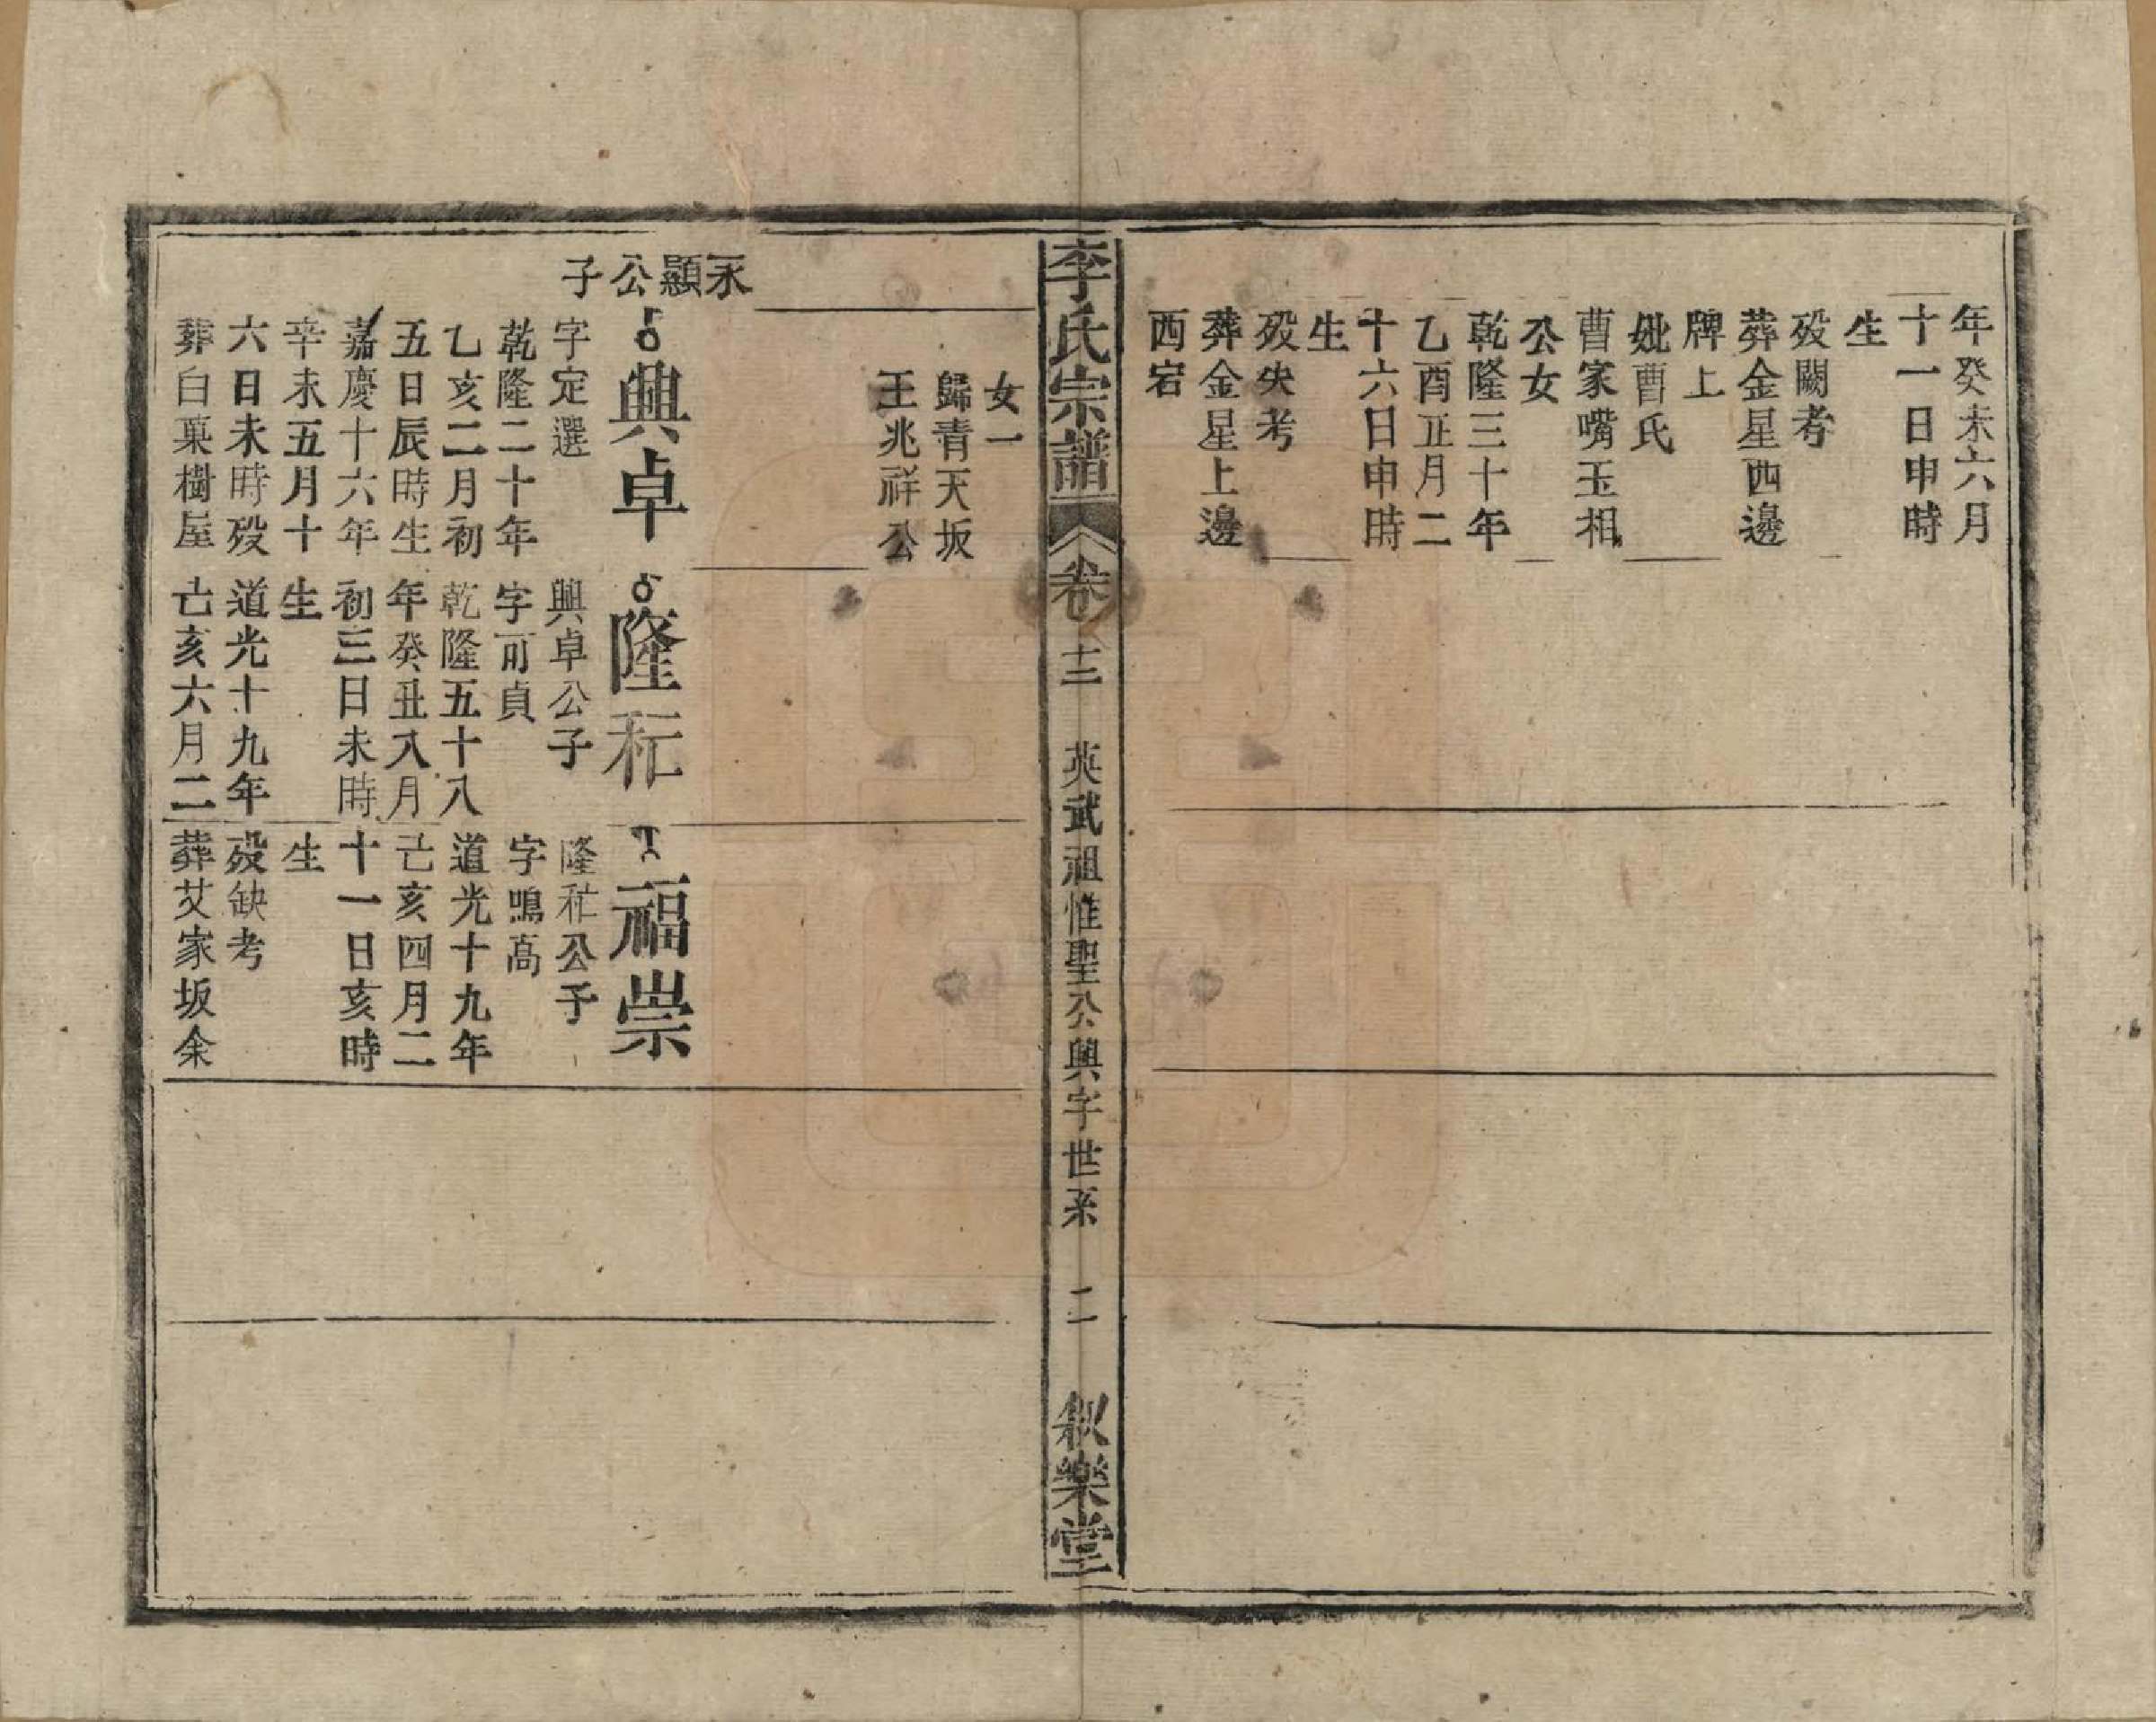 年癸未六月
十一日申時
生
歿闕考
葬金星西邊
牌上
妣曹氏
曹家嘴玉相
公女
乾隆三十年
乙酉正月二
十六日申時
生
歿失考
葬金星上邊
西宕
李氏宗譜
卷十二
英武祖惟聖公興字世系
二
叙樂堂
女一
歸青天坂
王兆祥公
永顯公子
興卓
字定選
乾隆二十年
乙亥二月初
五日辰時生
嘉慶十六年
辛未五月十
六日未時歿
葬白菓樹屋
隆秅
興卓公子
字可貞
乾隆五十八
年癸丑八月
初三日未時
生
道光十九年
己亥六月二
福崇
隆秅公子
字鳴高
道光十九年
己亥四月二
十一日亥時
生
歿缺考
葬艾家坂余